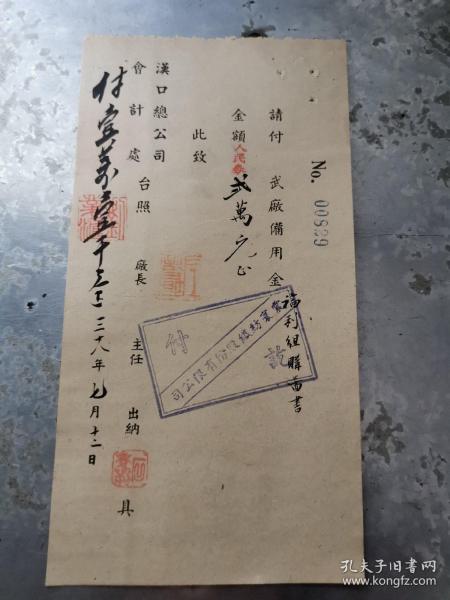 No. 00899
請付 武廠備用金 福利組購圖書
金額人民券貳萬元正
此致
漢口總公司
會計處 台照 廠長 主任 出納 具
付壹萬壹千
三十八年七月十二日
紡織股份有限公司
付訖
孔夫子旧书网
www.kongfz.com